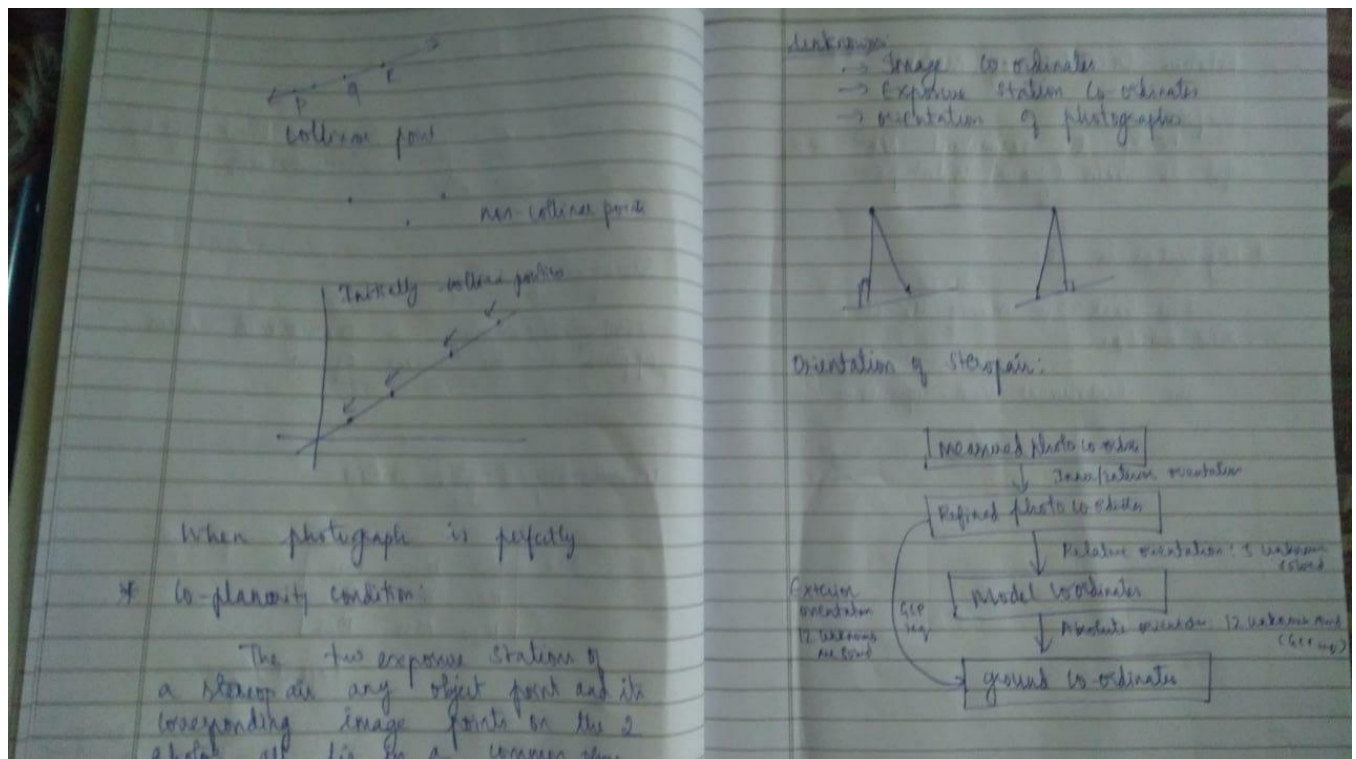 P q r
Collinear point
non-collinear points
Initially collinear points
When photograph is perfectly
* Co-planarity condition:
The two exposure stations of
a steropair any object point and its
corresponding image points on the 2
photos all lie in a common
Unknowns:
→ Image co-ordinates
→ Exposure station co-ordinates
→ orientation of photographs
Orientation of steropair:
measured photo co-ordi
orientation
Refined photo co-ordi
Relative orientation: 5 unknown
Model co-ordinates
Exterior
orientation
12 unknowns
are
GCP
req
Absolute orientation: 12 unknown
ground co-ordinates